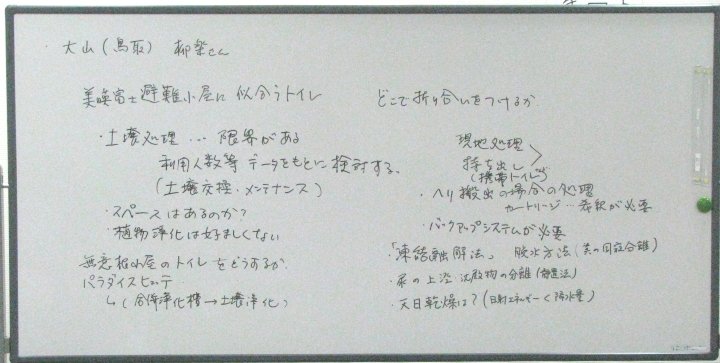 ・大山（鳥取） 柳楽さん
美瑛富士避難小屋に似合うトイレ
・土壌処理 … 限界がある
利用人数等 データをもとに検討する。
（土壌交換・メンテナンス）
・スペースはあるのか？
・植物浄化は好ましくない
小屋のトイレをどうするか
パラダイスヒュッテ
↳（合併浄化槽→土壌浄化）
どこで折り合いをつけるか
現地処理
持ち出し
（携帯トイレ）
・ヘリ搬出の場合の処理
カートリッジ…希釈が必要
・バックアップシステムが必要
・「凍結融解法」 脱水方法（固液分離）
・尿の上澄 沈殿物の分離（静置法）
・天日乾燥は？（日射エネルギー＜降水量）